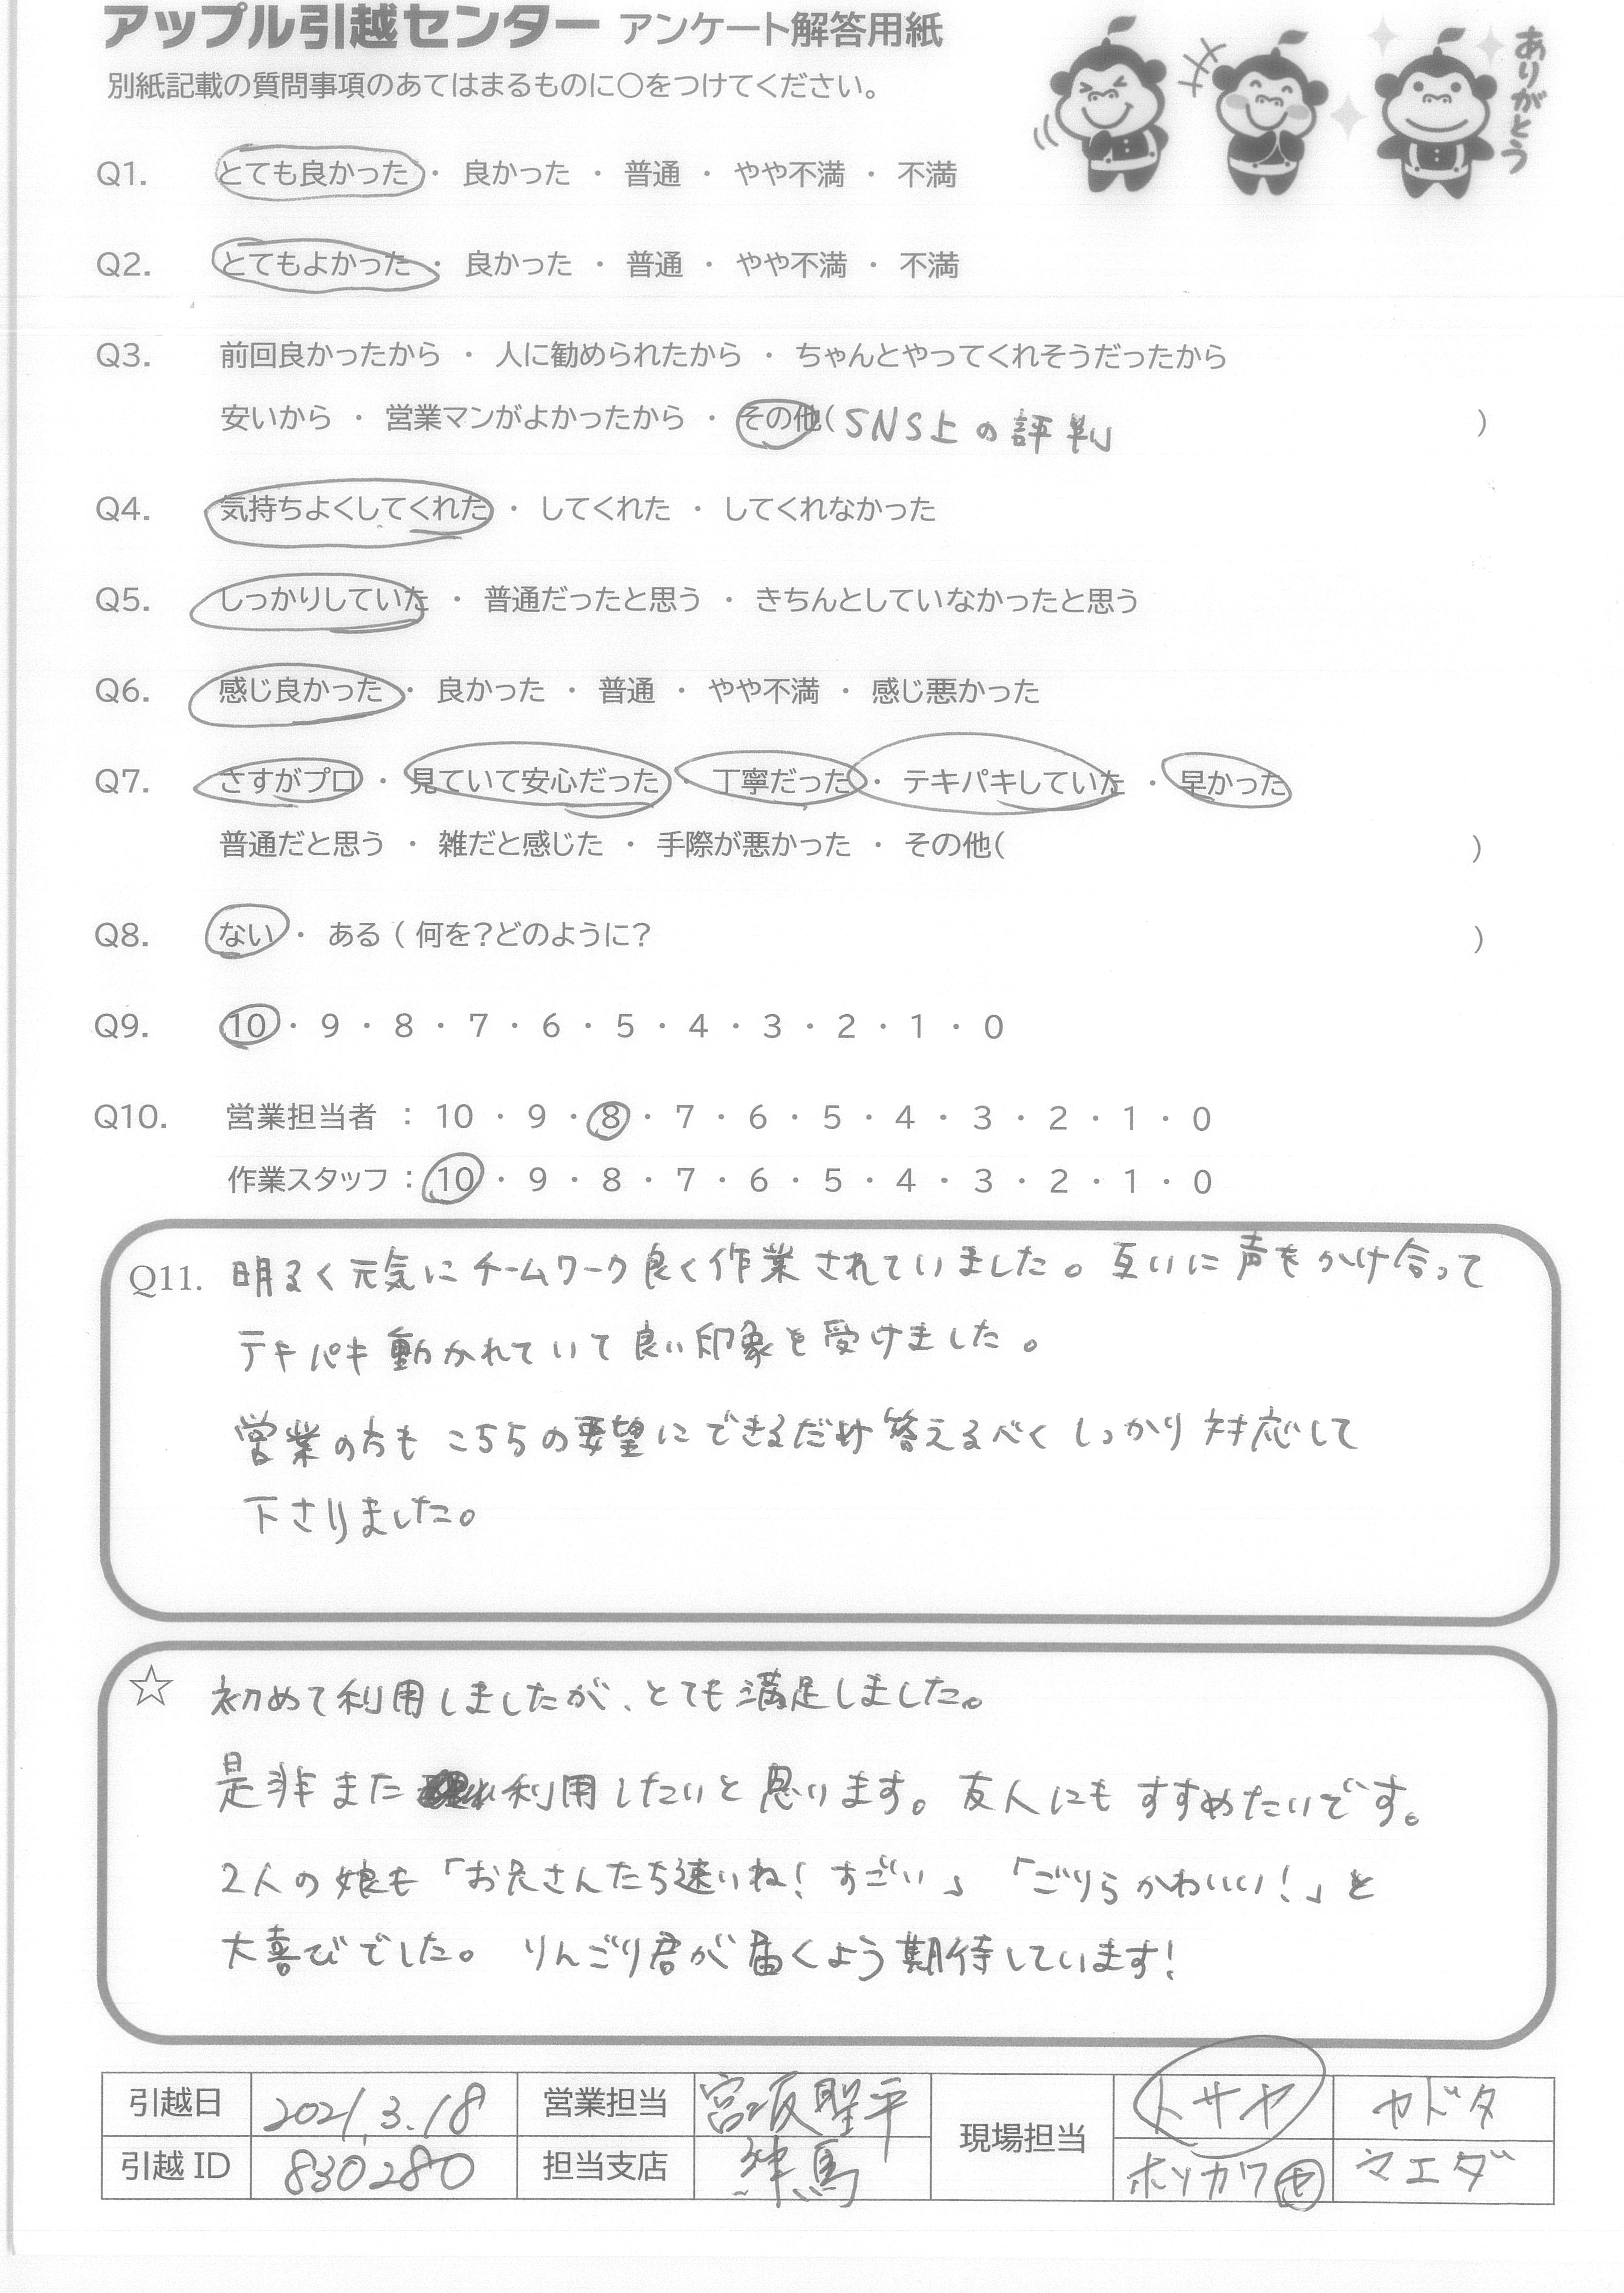 アップル引越センター アンケート解答用紙
別紙記載の質問事項のあてはまるものに○をつけてください。
ありがとう
Q1. とても良かった ・ 良かった ・ 普通 ・ やや不満 ・ 不満
Q2. とてもよかった ・ 良かった ・ 普通 ・ やや不満 ・ 不満
Q3. 前回良かったから ・ 人に勧められたから ・ ちゃんとやってくれそうだったから
安いから ・ 営業マンがよかったから ・ その他(SNS上の評判 )
Q4. 気持ちよくしてくれた ・ してくれた ・ してくれなかった
Q5. しっかりしていた ・ 普通だったと思う ・ きちんとしていなかったと思う
Q6. 感じ良かった ・ 良かった ・ 普通 ・ やや不満 ・ 感じ悪かった
Q7. さすがプロ ・ 見ていて安心だった ・ 丁寧だった ・ テキパキしていた ・ 早かった
普通だと思う ・ 雑だと感じた ・ 手際が悪かった ・ その他( )
Q8. ない ・ ある ( 何を?どのように? )
Q9. 10 ・ 9 ・ 8 ・ 7 ・ 6 ・ 5 ・ 4 ・ 3 ・ 2 ・ 1 ・ 0
Q10. 営業担当者 : 10 ・ 9 ・ 8 ・ 7 ・ 6 ・ 5 ・ 4 ・ 3 ・ 2 ・ 1 ・ 0
作業スタッフ : 10 ・ 9 ・ 8 ・ 7 ・ 6 ・ 5 ・ 4 ・ 3 ・ 2 ・ 1 ・ 0
Q11. 明るく元気にチームワーク良く作業されていました。互いに声をかけ合って
テキパキ動かれていて良い印象を受けました。
営業の方もこちらの要望にできるだけ答えるべくしっかり対応して
下さりました。
☆ 初めて利用しましたが、とても満足しました。
是非また利用したいと思います。友人にもすすめたいです。
2人の娘も「お兄さんたち速いね!すごい」「ごりらかわいい!」と
大喜びでした。りんごり君が届くよう期待しています!
引越日 2021.3.18 営業担当 宮坂聖平 現場担当 トサヤ カドタ
引越ID 830280 担当支店 練馬 ホソカワ マエダ